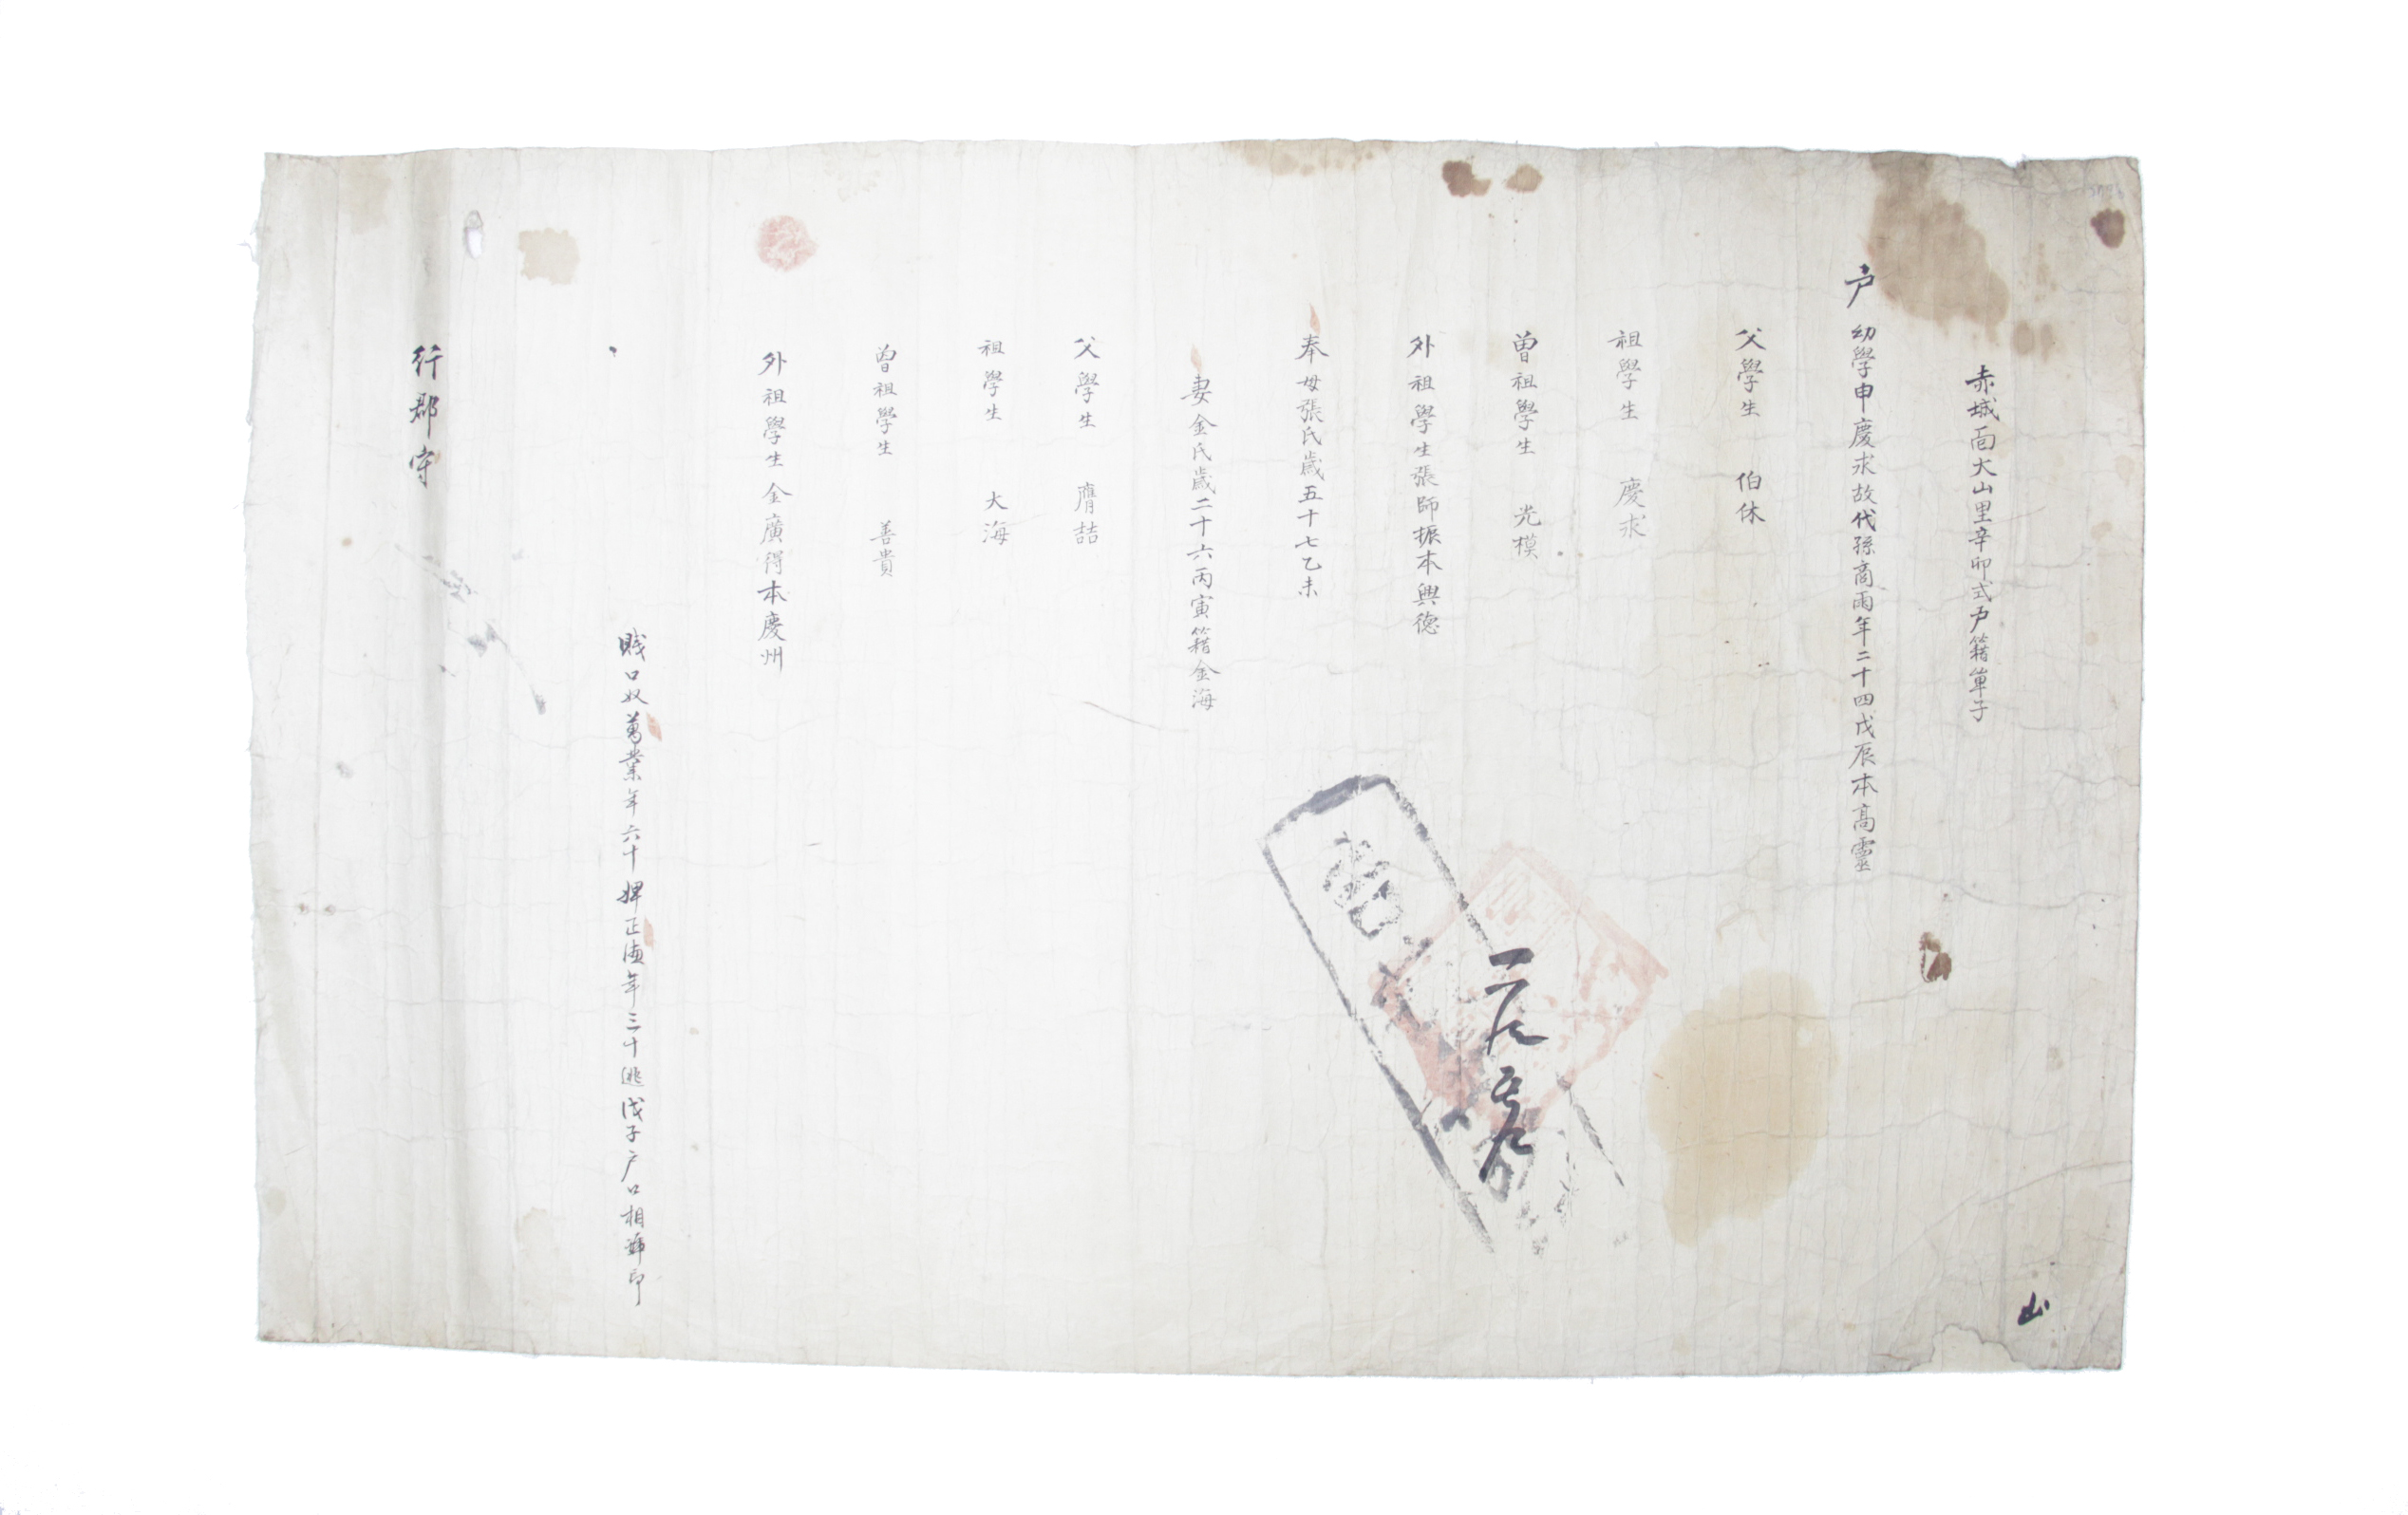 赤城面大山里辛卯式戶籍單子
戶 幼學申慶求故代孫商雨年二十四戊辰本高靈
父學生 伯休
祖學生 慶求
曾祖學生 光模
外祖學生張師振本興德
奉母張氏歲五十七乙未
妻金氏歲二十六丙寅籍金海
父學生 膺喆
祖學生 大海
曾祖學生 善貴
外祖學生金廣得本慶州
賤口奴萬業年六十婢正德年三十逃戊子戶口相準印
行郡守
山